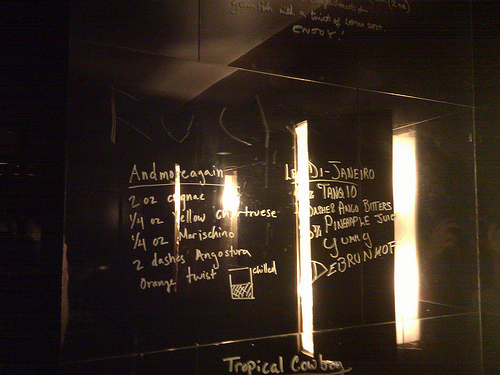 garnish with a twist of lemon zest.
ENJOY!
Andmoreagain
2 oz cognac
1/4 oz Yellow chartruese
1/4 oz Marischino
2 dashes Angostura
Orange twist
chilled
DI-JANEIRO
TANQ 10
DASHES ANGO BITTERS
PINEAPPLE JUICE
YUMMY
DEBRUNHOF
Tropical Cowboy